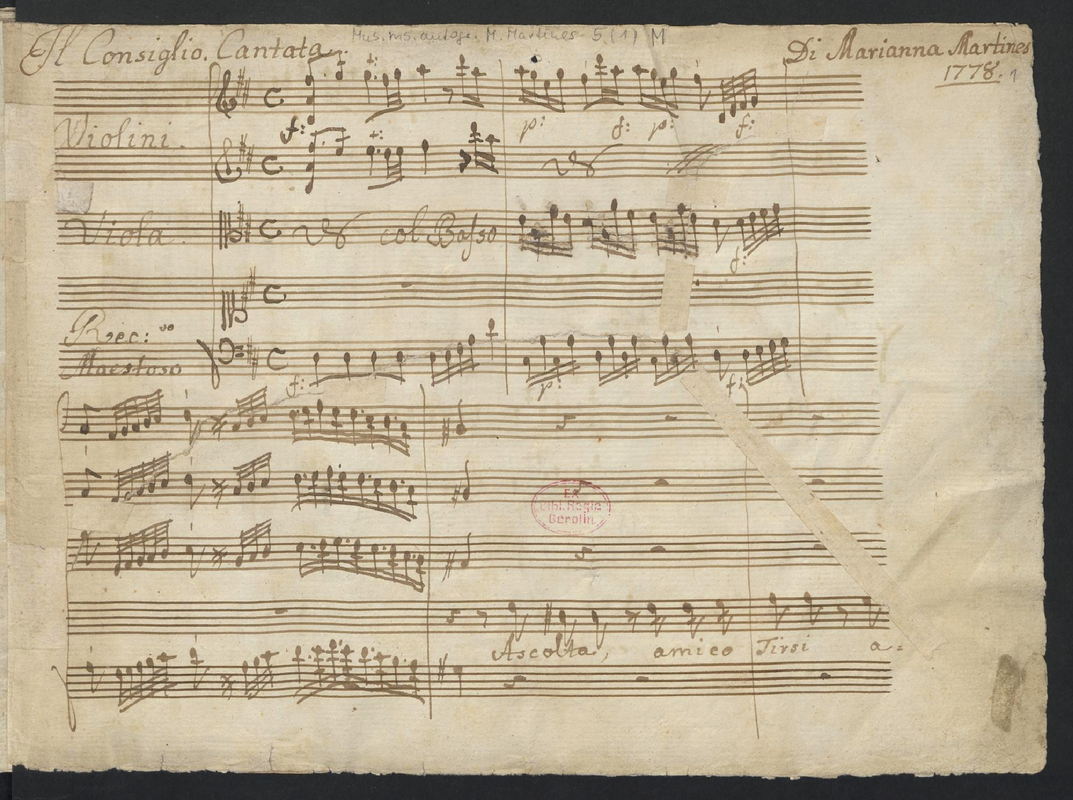 Mus. ms. autogr. M. Martines 5 (1) M
Il Consiglio. Cantata
Di Marianna Martines
1778. 1
Violini.
f: p: f: p: f:
Viola.
col Basso
f:
Rec: vo
Maestoso
f: p: f:
Ex
Bibl. Regia
Berolin
Ascolta, amico Tirsi a=